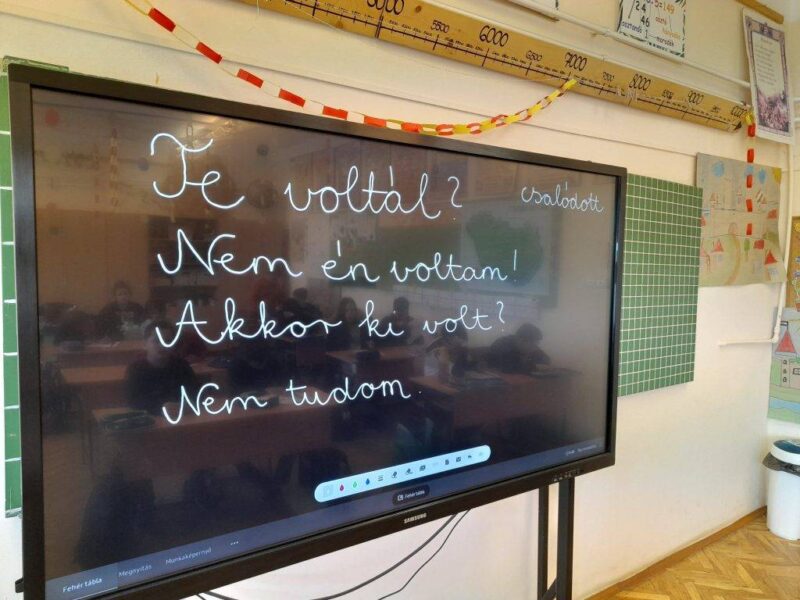 5000 5500 6000 6500 7000 7500 8000 8500 9000
Te voltál? csalódott
Nem én voltam!
Akkor ki volt?
Nem tudom.
Fehértábla
SAMSUNG
Fehértábla Megnyitás Munkaképernyő ...